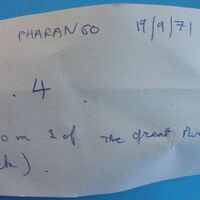 PHARANGO 19/9/71
. 4 .
om S of the great Pur
ck).